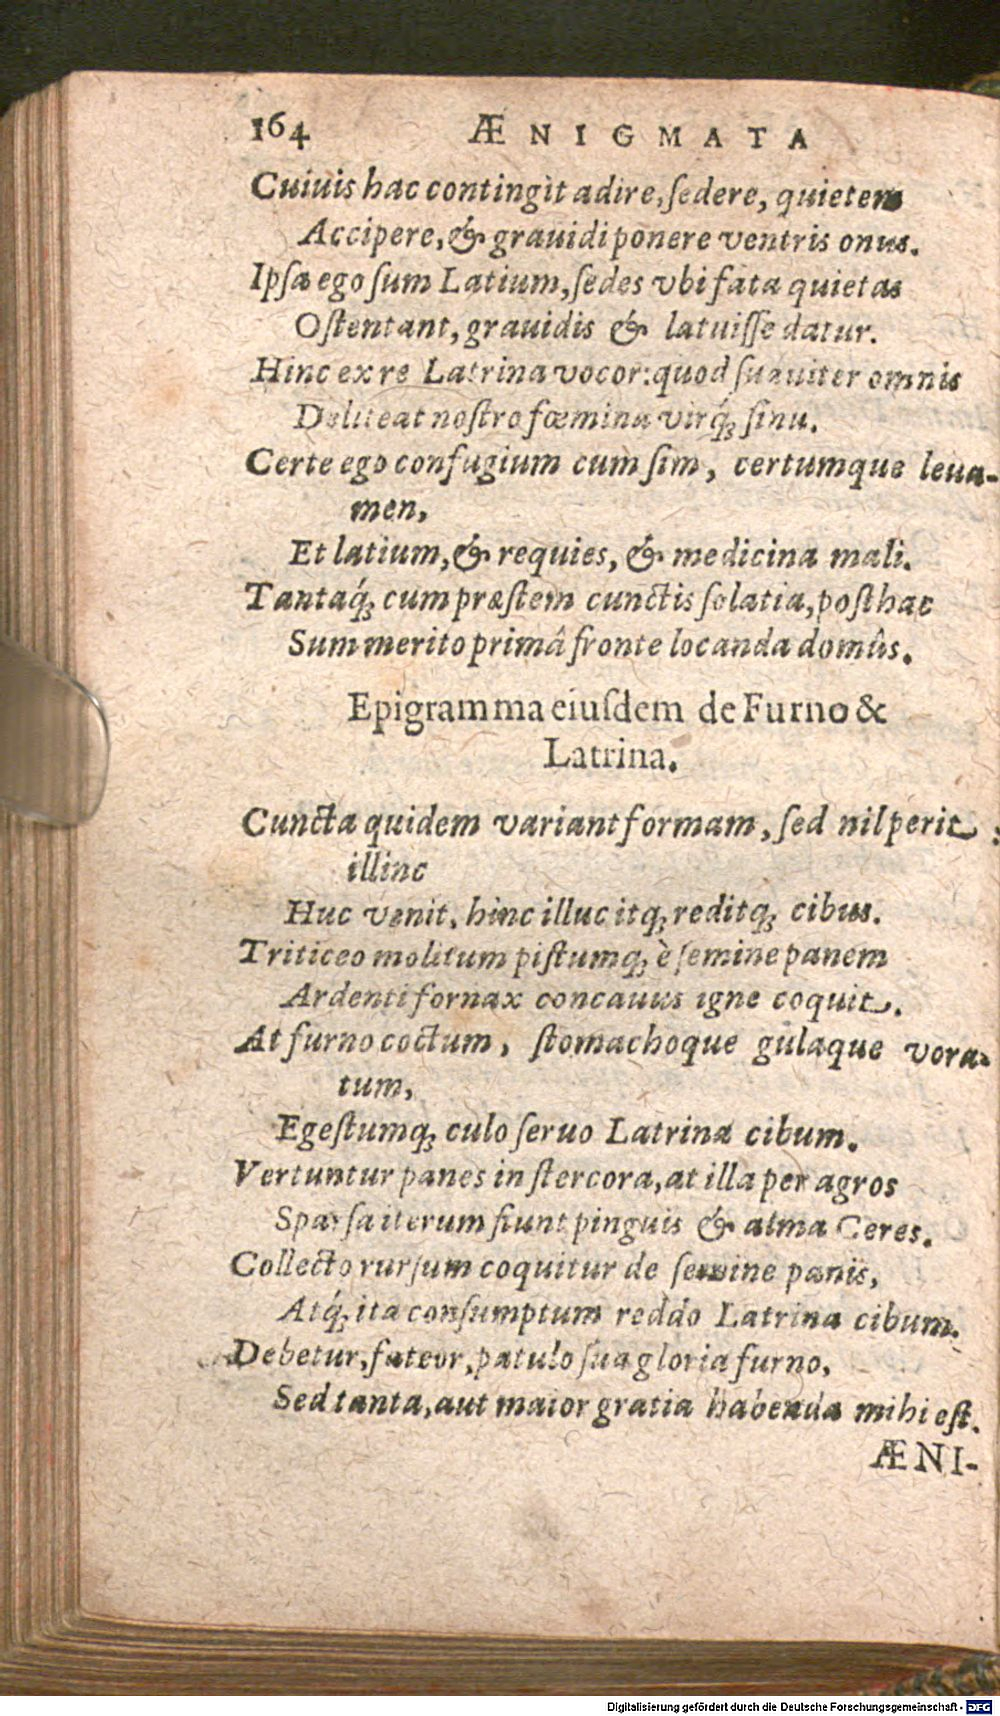 164 ÆNIGMATA
Cuiuis hac contingit adire, ſedere, quietem
Accipere, & grauidi ponere ventris onus.
Ipſa ego ſum Latium, ſedes vbi fata quietas
Oſtentant, grauidis & latuiſſe datur.
Hinc ex re Latrina vocor: quod ſuauiter omnis
Deliteat noſtro fœmina virq́; ſinu.
Certe ego confugium cum ſim, certumque leua-
men,
Et latium, & requies, & medicina mali.
Tantaq́; cum præſtem cunctis ſolatia, poſthac
Sum merito primâ fronte locanda domûs.
Epigramma eiuſdem de Furno &
Latrina.
Cuncta quidem variant formam, ſed nil perit:
illinc
Huc venit, hinc illuc itq; reditq; cibus.
Triticeo molitum piſtumq; è ſemine panem
Ardenti fornax concauus igne coquit.
At furno coctum, ſtomachoque gulaque vora-
tum,
Egeſtumq; culo ſeruo Latrina cibum.
Vertuntur panes in ſtercora, at illa per agros
Sparſa iterum fiunt pinguis & alma Ceres.
Collecto rurſum coquitur de ſemine panis,
Atq́; ita conſumptum reddo Latrina cibum.
Debetur, fateor, patulo ſua gloria furno,
Sed tanta, aut maior gratia habenda mihi eſt.
ÆNI-
Digitalisierung gefördert durch die Deutsche Forschungsgemeinschaft - DFG